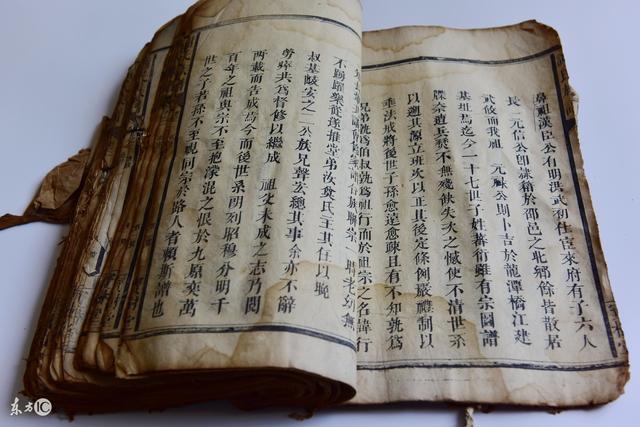 鼻祖漢臣公有明洪武初仕宦來府有子六人
長 元信公卽隸籍於邵邑之北鄉餘皆散居
武攸而我祖 元祿公則卜吉於龍潭橋江建
基址焉迄今一十七世子姓蕃衍雖有宗圖譜
牒奈遭兵燹不無殘缺失次之憾使不清世系
以遡其源立班次以正其後定條例嚴禮制以
垂法戒將後世子孫愈遠愈疎且有不知孰爲
兄弟孰爲伯叔孰爲祖行而於祖宗之名諱行
聯宗 一時老幼無
不踴躍樂從遂推堂弟汝爕氏主其任以晚
叔基畯安之二公族兄聲玄總其事余亦不辭
勞瘁共爲督修以繼成 祖父未成之志乃閱
兩載而告成焉今而後世系朗列昭穆分明千
百年之祖與宗不至抱濛混之恨於九原奕萬
世之子若孫不至視同宗於路人者賴斯譜也
东方IC